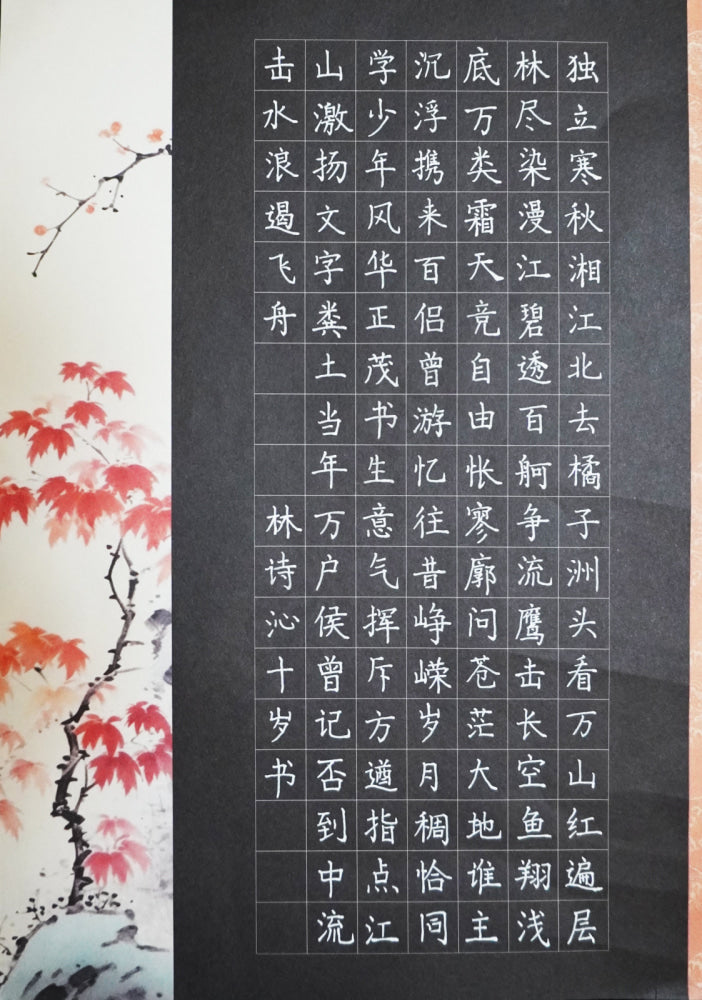 独立寒秋湘江北去橘子洲头看万山红遍层
林尽染漫江碧透百舸争流鹰击长空鱼翔浅
底万类霜天竞自由怅寥廓问苍茫大地谁主
沉浮携来百侣曾游忆往昔峥嵘岁月稠恰同
学少年风华正茂书生意气挥斥方遒指点江
山激扬文字粪土当年万户侯曾记否到中流
击水浪遏飞舟
林诗沁十岁书